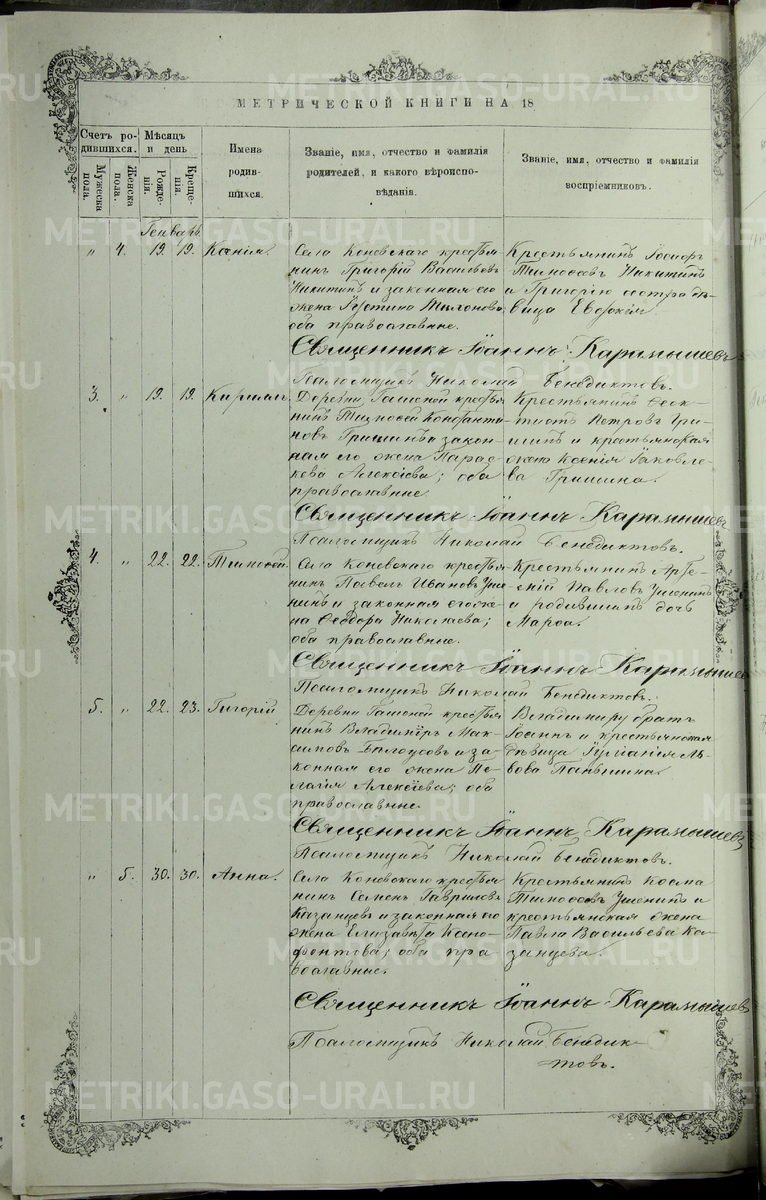 МЕТРИЧЕСКОЙ КНИГИ НА 18
Счетъ ро-
дившихся.
Мужеска
пола.
Женска
пола.
Мѣсяцъ
и день
Рожде-
нія.
Креще-
нія.
Имена
родив-
шихся.
Званіе, имя, отчество и фамилія
родителей, и какого вѣроиспо-
вѣданія.
Званіе, имя, отчество и фамилія
воспріемниковъ.
Генварь.
„ 4. 19. 19. Ксенія.
Села Коневскаго крестья-
нинъ Григорій Васильевъ
Никитинъ и законная его
жена Іустина
оба православные.
Крестьянинъ Іосифъ
Тимоѳеевъ Никитинъ
и Григорію сестра дѣ-
вица Евдокія.
Священникъ Іоаннъ Карамышевъ
Псаломщикъ Николай Бенедиктовъ.
3. „ 19. 19. Кириллъ.
Деревни Гашеной крестья
нинъ Тимоѳей Константи-
новъ Гришинъ и закон-
ная его жена Парас-
кева Алексіева; оба
православные.
Крестьянинъ Ѳеок-
тистъ Петровъ Гри-
шинъ и крестьянская
жена Ксенія Іаковле-
ва Гришина.
Священникъ Іоаннъ Карамышевъ
Псаломщикъ Николай Бенедиктовъ.
4. „ 22. 22. Тимоѳей.
Села Коневскаго крестья-
нинъ Павелъ Ивановъ Уше-
нинъ и законная его же-
на Ѳеодора Николаева;
оба православные.
Крестьянинъ Арсе-
ній Павловъ Ушенинъ
и родившихъ дочь
Марѳа.
Священникъ Іоаннъ Карамышевъ
Псаломщикъ Николай Бенедиктовъ.
5. „ 22. 23. Григорій
Деревни Гашеной крестья
нинъ Владиміръ Мак-
симовъ Бѣлоусовъ и за-
конная его жена Пе-
лагія Алексіева; оба
православные.
Владиміру братъ
Іоаннъ и крестьянская
дѣвица Іуліанія Ль-
вова Паньшина.
Священникъ Іоаннъ Карамышевъ
Псаломщикъ Николай Бенедиктовъ.
„ 5. 30. 30. Анна.
Села Коневскаго крестья
нинъ Семенъ Гавриловъ
Казанцевъ и законная его
жена Елизавета Ксено-
фонтова; оба пра
вославные.
Крестьянинъ Косма
Тимоѳеевъ Ушенинъ и
крестьянская жена
Павла Васильева Ка-
занцева.
Священникъ Іоаннъ Карамышевъ
Псаломщикъ Николай Бенедик-
товъ.
METRIKI.GASO-URAL.RU